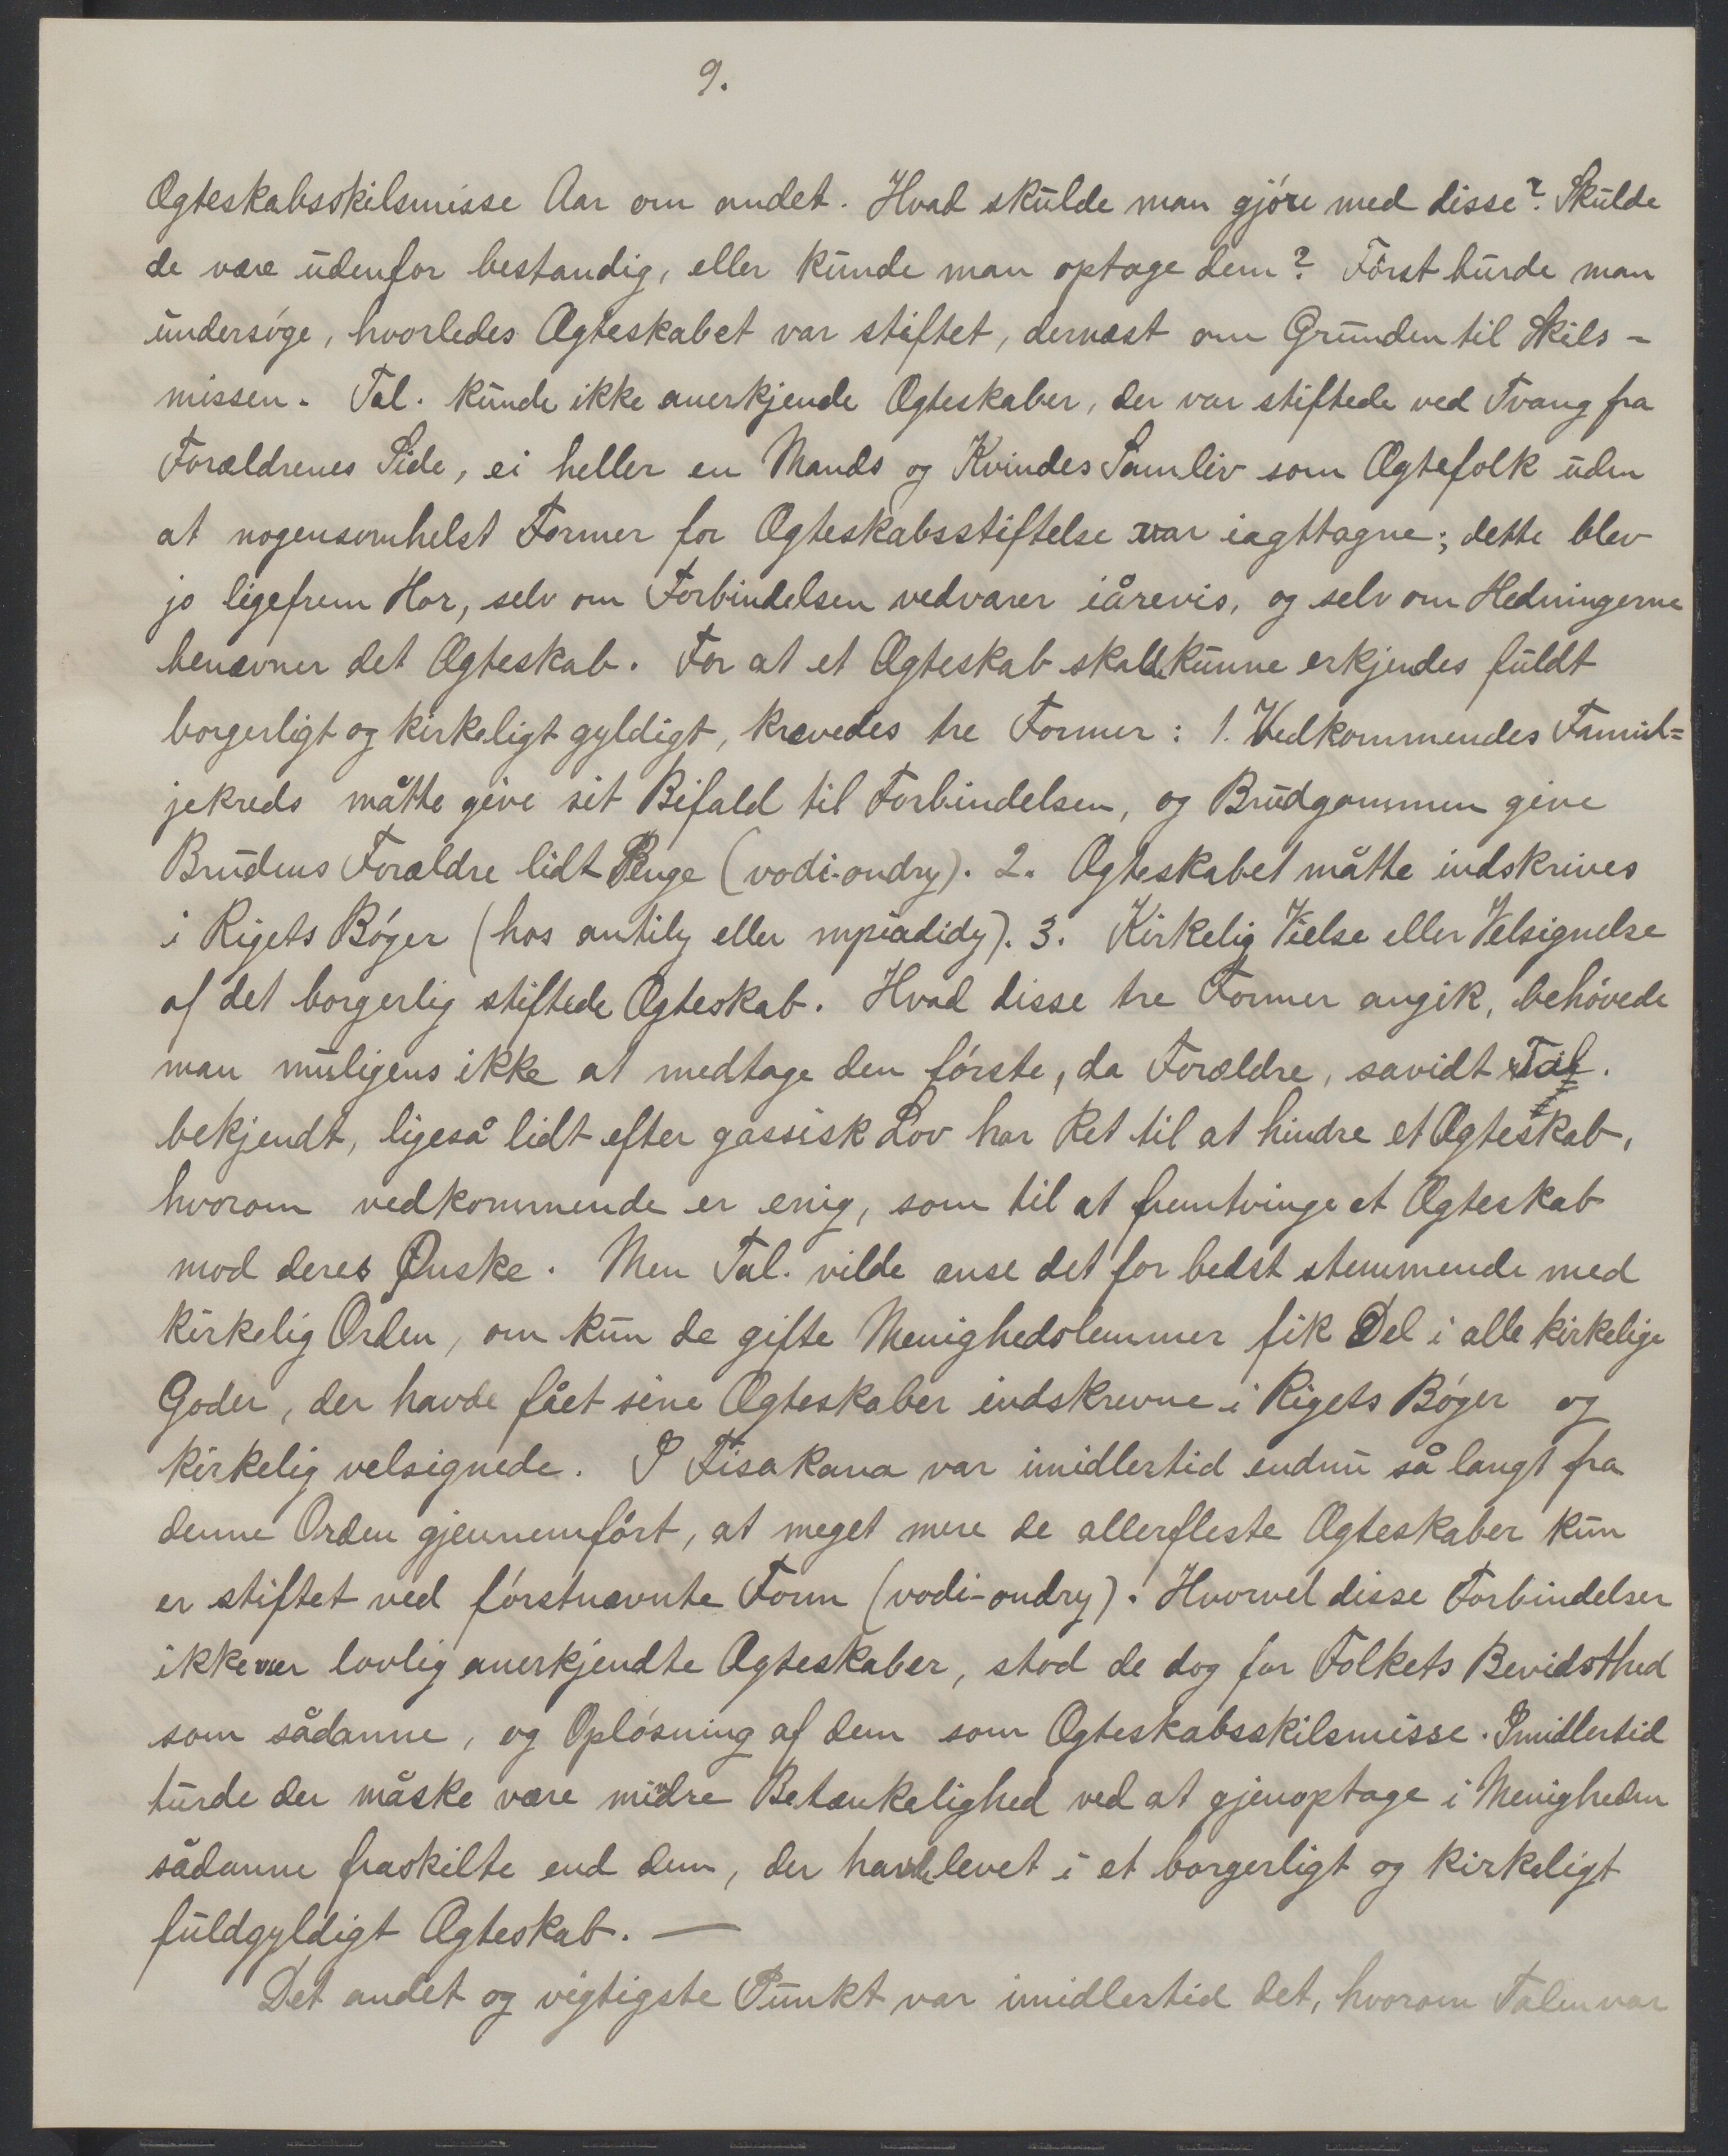 9.
Ægteskabsskilsmisse Aar om andet. Hvad skulde man gjøre med disse? Skulde
de være udenfor bestandig, eller kunde man optage dem? Først burde man
undersøge, hvorledes Ægteskabet var stiftet, dernæst om Grunden til Skils-
missen. Tal. kunde ikke anerkjende Ægteskaber, der var stiftede ved Tvang fra
Forældrenes Side, ei heller en Mands og Kvindes Samliv som Ægtefolk uden
at nogensomhelst Former for Ægteskabsstiftelse var iagttagne; dette blev
jo ligefrem Hor, selv om Forbindelsen vedvarer iårevis, og selv om Hedningerne
benævner det Ægteskab. For at et Ægteskab skulde kunne erkjendes fuldt
borgerligt og kirkeligt gyldigt, krævedes tre Former: 1. Vedkommendes Famil=
jekreds måtte give sit Bifald til Forbindelsen, og Brudgommen give
Brudens Forældre lidt Penge (vodi-ondry). 2. Ægteskabet måtte indskrives
i Rigets Bøger (hos antily eller mpiadidy). 3. Kirkelig Vielse eller Velsignelse
af det borgerlig stiftede Ægteskab. Hvad disse tre Former angik, behøvede
man muligens ikke at medtage den første, da Forældre, savidt Tal.
bekjendt, ligeså lidt efter gassisk Lov har Ret til at hindre et Ægteskab,
hvorom vedkommende er enig, som til at fremtvinge et Ægteskab
mod deres Ønske. Men Tal. vilde anse det for bedst stemmende med
kirkelig Orden, om kun de gifte Menighedslemmer fik Del i alle kirkelige
Goder, der havde fået sine Ægteskaber indskrevne i Rigets Bøger og
kirkelig velsignede. I Fisakana var imidlertid endnu så langt fra
denne Orden gjennemført, at meget mere de allerfleste Ægteskaber kun
er stiftet ved førstnævnte Form (vodi-ondry). Hvorvel disse Forbindelser
ikke var lovlig anerkjendte Ægteskaber, stod de dog for Folkets Bevidsthed
som sådanne, og Opløsning af dem som Ægteskabsskilsmisse. Imidlertid
turde der måske være mindre Betænkelighed ved at gjenoptage i Menigheden
sådanne fraskilte end dem, der havde levet i et borgerligt og kirkeligt
fuldgyldigt Ægteskab. —
Det andet og vigtigste Punkt var imidlertid det, hvorom Talen var